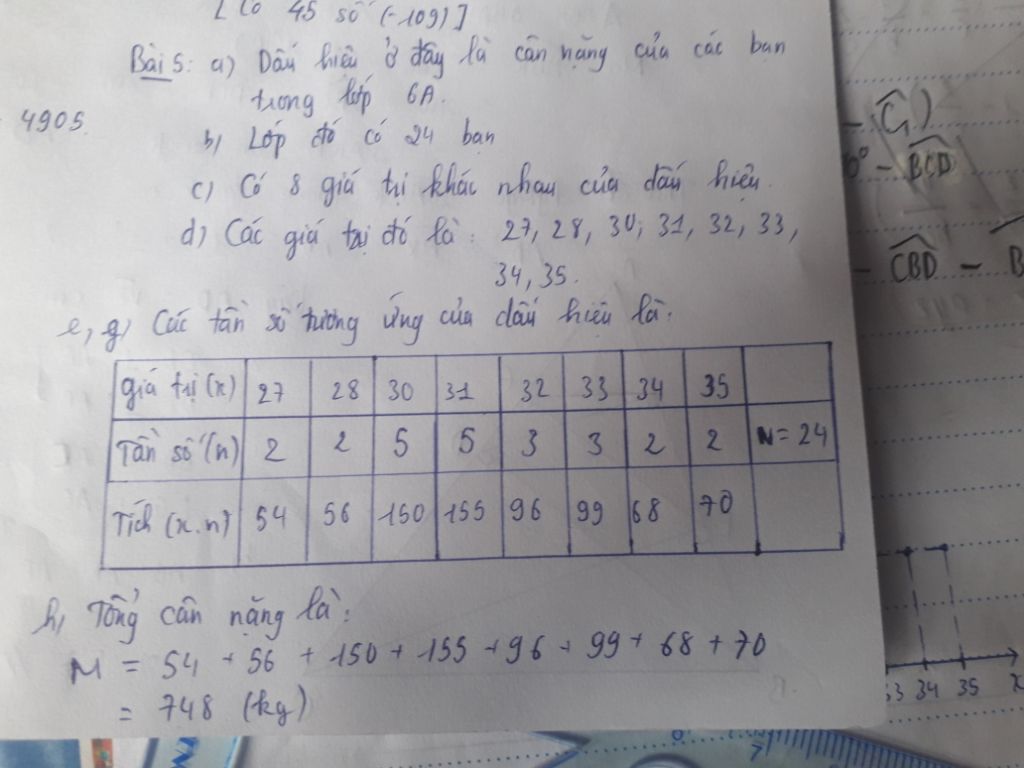 [ Có 45 số (-109) ]
Bài 5: a) Dấu hiệu ở đây là cân nặng của các bạn
trong lớp 6A.
4905.
b) Lớp đó có 24 bạn
c) Có 8 giá trị khác nhau của dấu hiệu.
d) Các giá trị đó là: 27, 28, 30, 31, 32, 33,
34, 35.
e, g) Các tần số tương ứng của dấu hiệu là:
Giá trị (x) 27 28 30 31 32 33 34 35
Tần số (n) 2 2 5 5 3 3 2 2 N = 24
Tích (x.n) 54 56 150 155 96 99 68 70
h, Tổng cân nặng là:
M = 54 + 56 + 150 + 155 + 96 + 99 + 68 + 70
= 748 (kg)
- BCD
- CBD - B
33 34 35 x